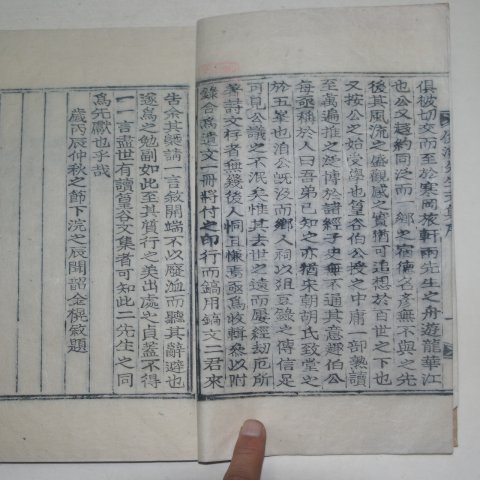 俱被切交而至於寒岡旅軒兩先生之舟遊龍華江
也公又趍約同泛而一鄉之宿德名彦無不與之先
後其風流之盛觀感之實猶可追想於百世之下也
又按公之始受學也篁谷伯公授之中庸一部熟讀
至萬遍推之延博於諸經子史無不通其意趣伯公
每亟稱於人曰吾弟已知之亦猶宋朝胡氏致堂之
於五峯也洎公旣沒而鄉人祠以俎豆錄之傳信足
可見公議之不泯矣惟其去世之遠而屢經刧厄所
著詩文存者無幾後人恫且懼焉爰爲收輯叅以附
錄合爲遺文一冊將付之印行而鎬用鎬文二君來
告余其槩請一言敘開端不以廢洫而聽其辭避也
遂爲之勉副如此至其質行之美出處之貞蓋不得
一一言盡世有讀篁谷文集者可知此二先生之同
爲先獻也乎哉
歲丙辰仲秋之節下浣之辰聞韶金榥敘題